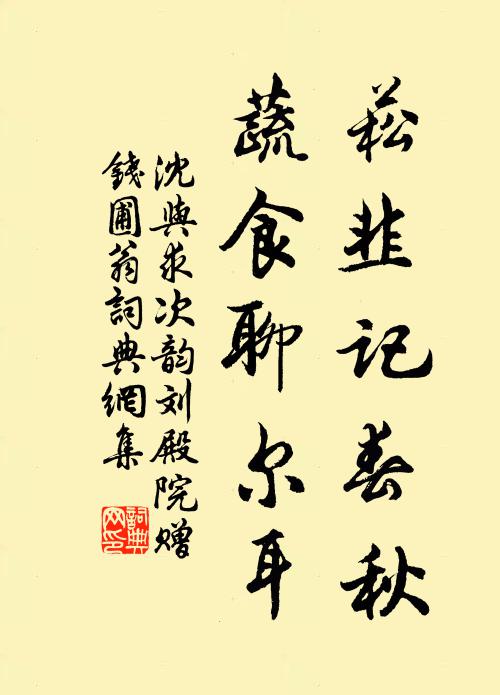 菘韭记春秋
蔬食聊尔耳
沈與求次韵刘殿院赠
錢圃翁詞典網集
詞典网印